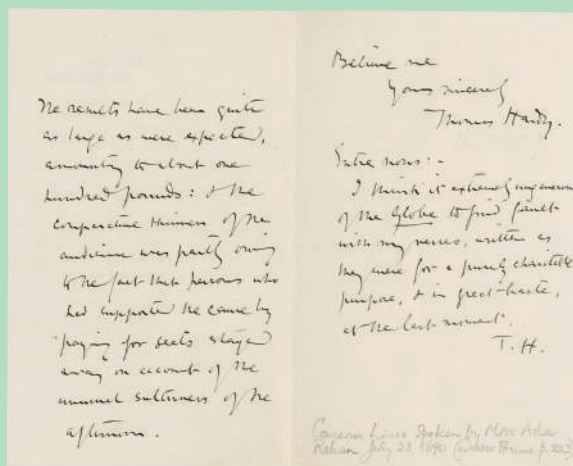 The results have been quite
as large as were expected,
amounting to about one
hundred pounds: & the
comparative thinness of the
audience was partly owing
to the fact that persons who
had supported the cause by
paying for seats stayed
away on account of the
unusual sultriness of the
afternoon.
Believe me
Yours sincerely
Thomas Hardy.
Entre nous:-
I think it extremely ungenerous
of the Globe to find fault
with my verses, written as
they were for a purely charitable
purpose, & in great haste,
at the last moment.
T. H.
Concerns Lines Spoken by Miss Ada
Rehan July 23, 1890 (Wessex Poems p. 203)